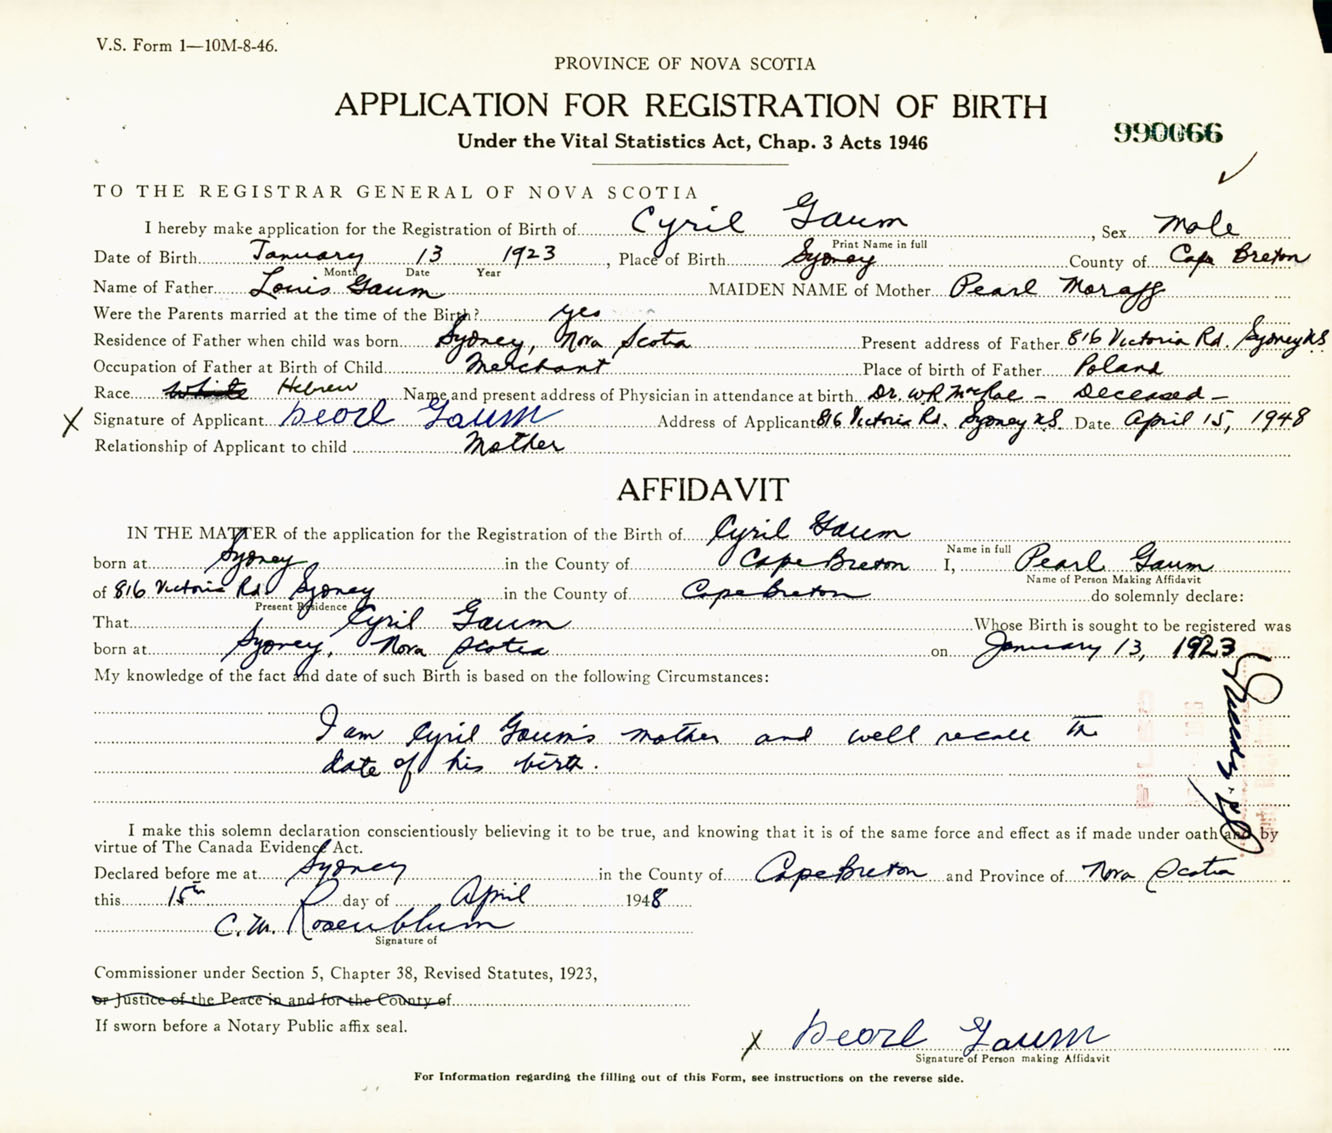 V.S. Form 1—10M-8-46.
PROVINCE OF NOVA SCOTIA
APPLICATION FOR REGISTRATION OF BIRTH
Under the Vital Statistics Act, Chap. 3 Acts 1946
990066
TO THE REGISTRAR GENERAL OF NOVA SCOTIA
I hereby make application for the Registration of Birth of Cyril Gaum, Sex Male
Print Name in full
Date of Birth January 13 1923, Place of Birth Sydney County of Cape Breton
Month Date Year
Name of Father Louis Gaum MAIDEN NAME of Mother Pearl Moraff
Were the Parents married at the time of the Birth? yes
Residence of Father when child was born Sydney, Nova Scotia Present address of Father 816 Victoria Rd. Sydney N.S.
Occupation of Father at Birth of Child Merchant Place of birth of Father Poland
Race White Hebrew Name and present address of Physician in attendance at birth Dr. W.R. - Deceased -
X Signature of Applicant Pearl Gaum Address of Applicant 816 Victoria Rd. Sydney N.S. Date April 15, 1948
Relationship of Applicant to child Mother
AFFIDAVIT
IN THE MATTER of the application for the Registration of the Birth of Cyril Gaum
Name in full
born at Sydney in the County of Cape Breton I, Pearl Gaum
Name of Person Making Affidavit
of 816 Victoria Rd Sydney in the County of Cape Breton do solemnly declare:
Present Residence
That Cyril Gaum Whose Birth is sought to be registered was
born at Sydney, Nova Scotia on January 13, 1923
My knowledge of the fact and date of such Birth is based on the following Circumstances:
I am Cyril Gaum's mother and well recall the
date of his birth.
I make this solemn declaration conscientiously believing it to be true, and knowing that it is of the same force and effect as if made under oath and by
virtue of The Canada Evidence Act.
Declared before me at Sydney in the County of Cape Breton and Province of Nova Scotia
this 15th day of April 1948
C. M. Rosenblum
Signature of
Commissioner under Section 5, Chapter 38, Revised Statutes, 1923,
or Justice of the Peace in and for the County of
If sworn before a Notary Public affix seal.
X Pearl Gaum
Signature of Person making Affidavit
For Information regarding the filling out of this Form, see instructions on the reverse side.